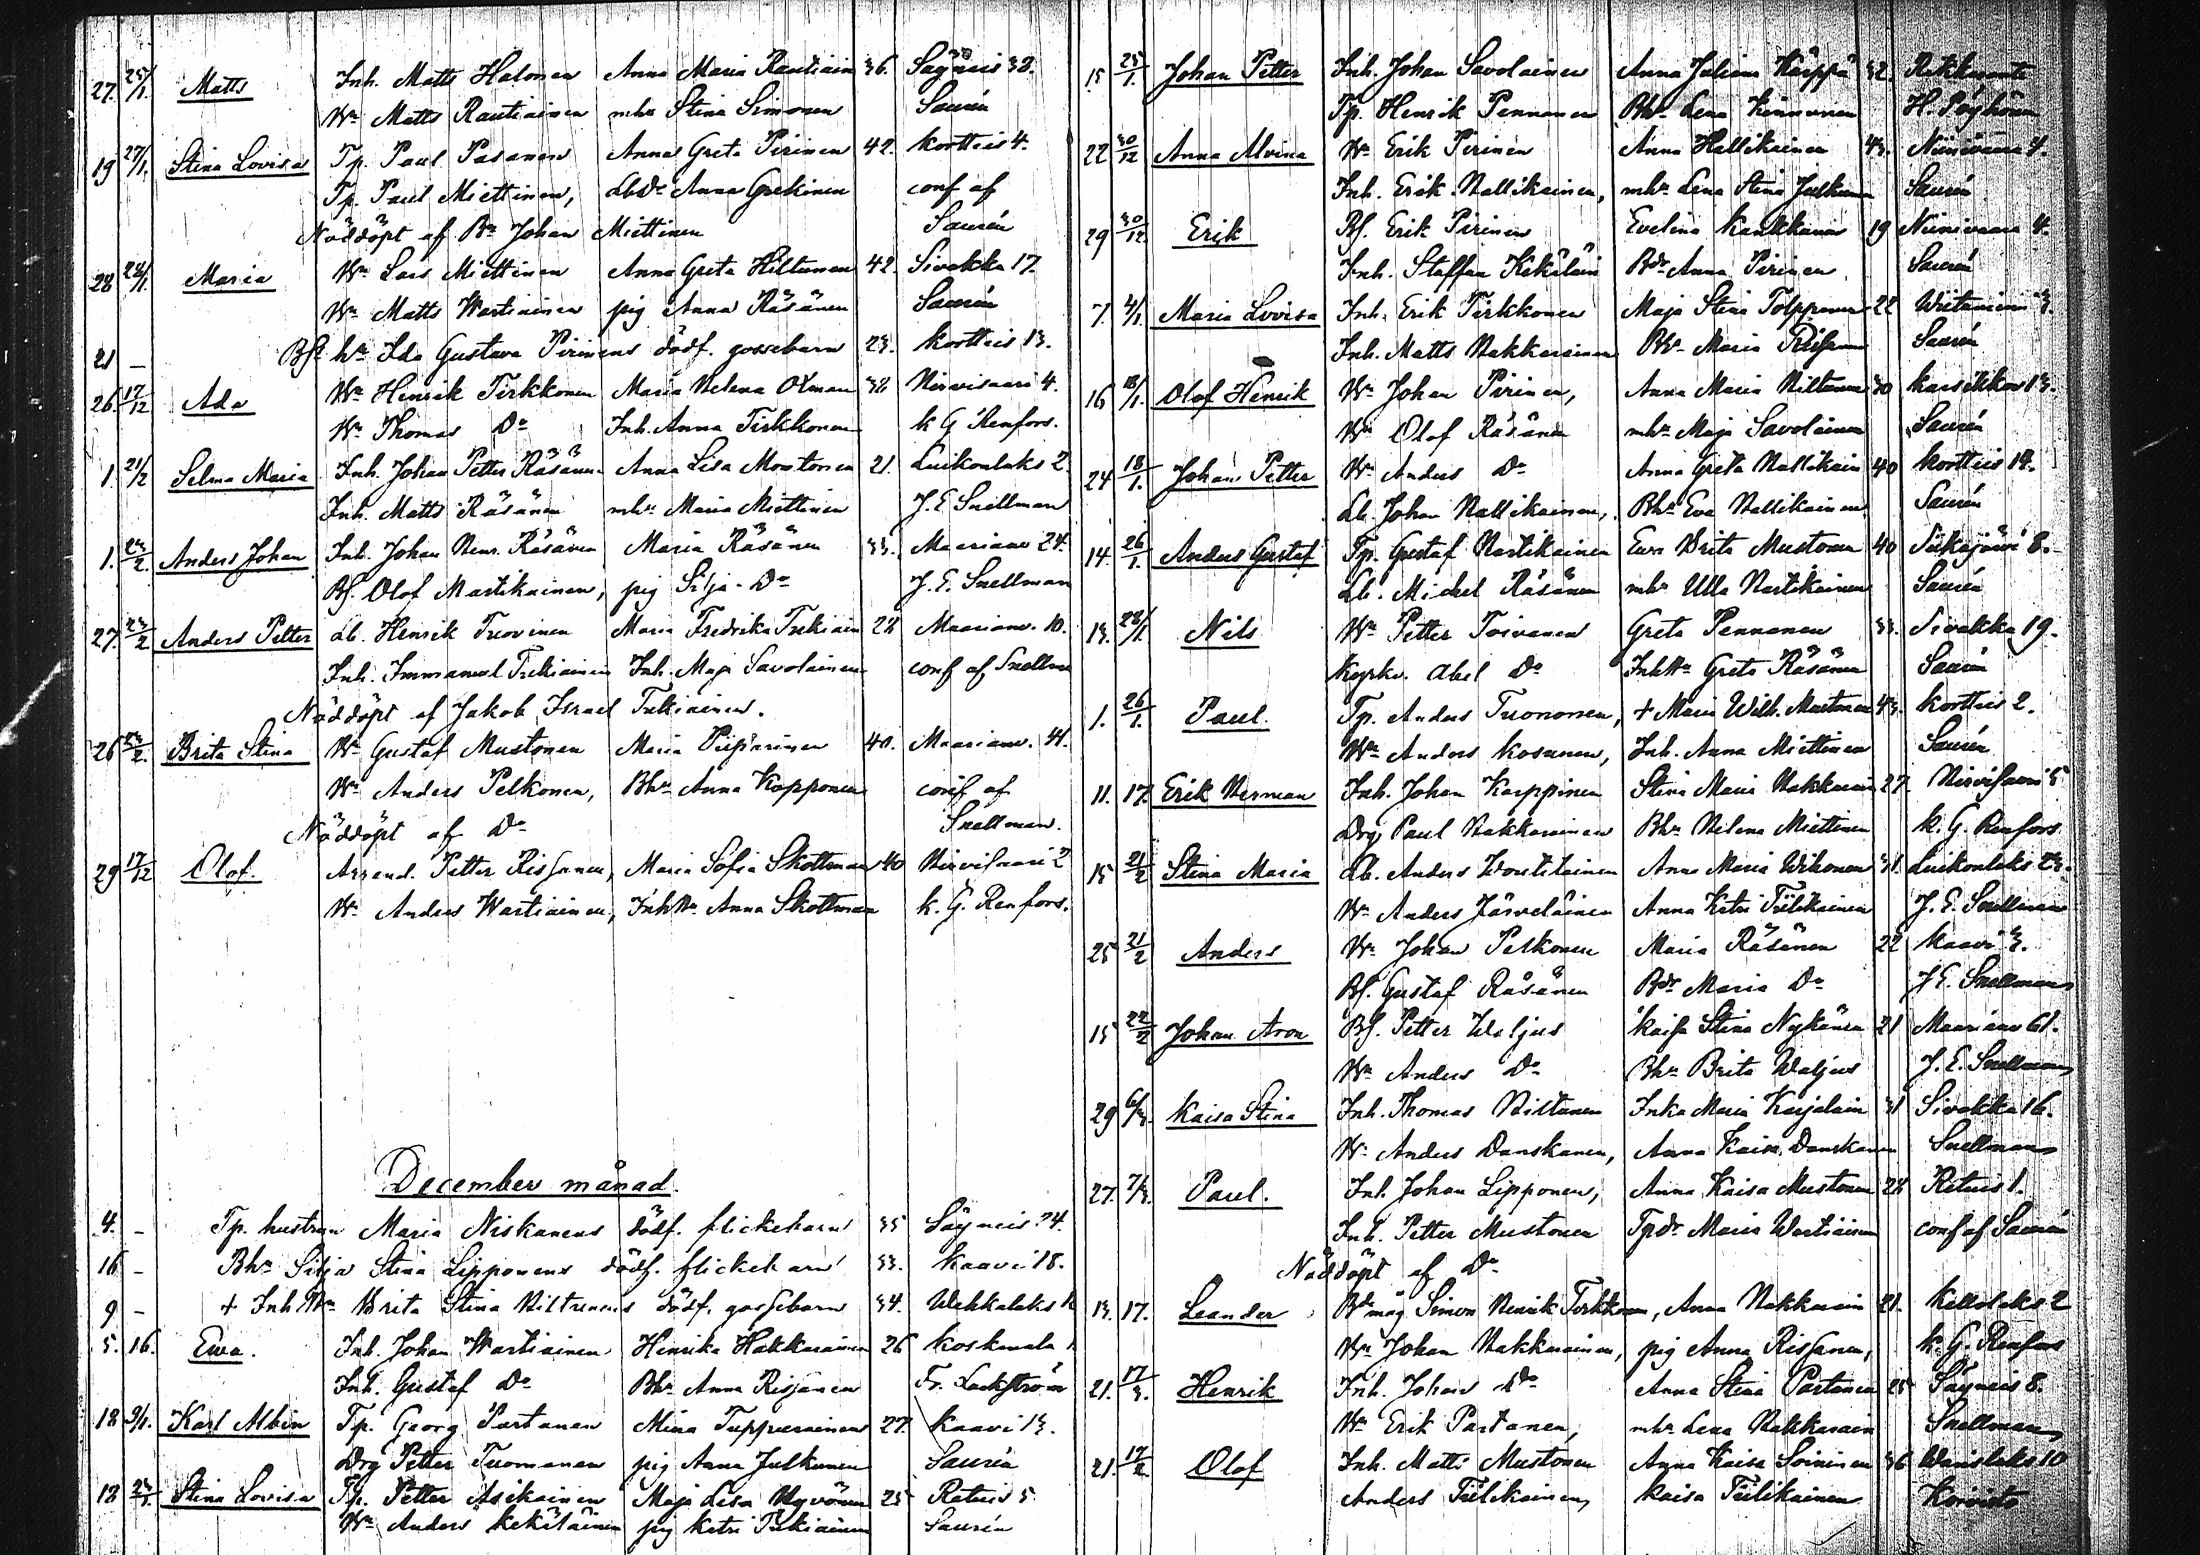 27. 25/1. Matts Inh. Matts Halonen Anna Maria Rautiain 36. Säyneis 38.
Wn Matts Rautiainen mhu Stina Simonen Saurén
19 27/1. Stina Lovisa Tp. Paul Pasanen Anna Greta Pirinen 42. Kortteis 4.
Tp. Paul Miettinen, Lbdr Anna conf af
Nöddöpt af Bn Johan Miettinen Saurén
28 28/1. Maria Wn Lars Miettinen Anna Greta Hiltunen 42. Sivakka 17.
Wn Matts Wartiainen pig Anna Räsänen Saurén
21 – hu Ida Gustava Pirinens dödf. gossebarn 23. Kortteis 13.
26. 17/12 Ada Wn Henrik Tirkkonen Maria Helena Oxman Hirvisaari 4.
Wn Thomas Do Inh. Anna Tirkkonen k G Renfors.
1. 21/2 Selma Maria Inh. Johan Petter Räsänen Anna Lisa Montonen 21. Luikonlaks 2.
Inh. Matts Räsänen mhu Maria Miettinen J. E Snellman
1. 23/2. Anders Johan Inh. Johan Henr. Räsänen Maria Räsänen 33. Maarianv 24.
Bs. Olof Martikainen, pig Silja Do J. E. Snellman
27. 23/2 Anders Petter Lb. Henrik Tuovinen Maria Fredrika Tukiain Maarianv. 10.
Inh. Immanuel Tukiainen Inh. Maja Savolainen conf af Snellm
Nöddöpt af Jakob Israel Tukiainen.
26 23/2. Brita Stina Wn Gustaf Mustonen Maria Piiparinen 40. Maarianv. 41.
Wn Anders Pelkonen, Bhu Anna Kopponen conf af
Nöddöpt af Do Snellman.
29 17/12 Olof. Arrend. Petter Rissanen, Maria Sofia Skottman 40 Hirvisaari 2
Wn Anders Wartiainen, Inhhu Anna Skottman k. G. Renfors.
December månad.
4. – Tp. hustrun Maria Niskanens dödf. flickebarn 35 Säyneis 24.
16 – Bhu Silja Stina Lipponens dödf. flickebarn 33. Kaavi 18.
9 – + Inh hu Brita Stina Hiltunens dödf. gossebarn 34. Wehkalaks
5. 16. Ewa. Inh. Johan Wartiainen Henrika Hakkarainen 26 Koskenala
Inh. Gustaf Do Bhu Anna Rissanen Fr. Lackström
18 9/1. Karl Albin Tp. Georg Partanen Mina Tuppurainen 27. Kaavi 13.
Drg Petter Tuomanen pig Anna Julkunen Saurén
18 23/1. Stina Lovisa Tp. Petter Asikainen Maja Lisa Hyvönen 25 Retuis 5
Wn Anders Kekäläinen pig Ketri Tukiainen Saurén
15 25/1. Johan Petter Inh. Johan Savolainen Anna Juliana Kärppä 32.
Tp. Henrik Pennanen Bhu Lena Kinnunen H. Pöyhönen
22 30/12 Anna Alvina Wn Erik Pirinen Anna Hallikainen 43. Niinivaara 4.
Inh. Erik Hallikainen, mhu Lena Stina Julkunen Saurén
29 30/12. Erik Bs. Erik Pirinen Evelina Kaukkanen 19 Niinivaara 4.
Inh. Staffan Kekäläin Bdr Anna Pirinen Saurén
7. 4/1. Maria Lovisa Inh. Erik Tirkkonen Maja Stina Tolppanen 22 Wiitaniemi 3.
Inh. Matts Hakkarainen Bhu Maria Rissanen Saurén
16 18/1. Olof Henrik Wn Johan Pirinen, Anna Maria Hiltunen 30 Karsikkov 13.
Wn Olof Räsänen mhu Maja Savolainen Saurén
24 18/1. Johan Petter Wn Anders Do Anna Greta Hallikain 40 Kortteis 14.
Lb. Johan Hallikainen, Bhu Eva Hallikainen Saurén
14. 26/1. Anders Gustaf Tp. Gustaf Martikainen Eva Brita Mustonen 40 Siikajärvi 8.
Lb. Michel Räsänen mhu Ulla Martikainen Saurén
13. 28/1. Nils Wn Petter Toivanen Greta Pennanen 33. Sivakka 19.
Kyrkv. Abel Do Inhhu Greta Räsänen Saurén
1. 26/1. Paul. Tp. Anders Tuononen, + Maria Wilh. Mustonen 43. Kortteis 2.
Wn Anders Kosunen, Inh. Anna Miettinen Saurén
11. 17. Erik Herman Inh. Johan Karppinen Stina Maria Hakkarain 27. Hirvisaari 5
Drg Paul Hakkarainen Bhu Helena Miettinen k. G. Renfors
15 21/2 Stina Maria Lb. Anders Woutilainen Anna Maria Wihonen 31. Luikonlaks 23.
Wn Anders Järveläinen Anna Ketri Tiilikainen J. E. Snellman
25 21/2 Anders Wn Johan Pelkonen Maria Räsänen 22 Kaavi 3.
Bs. Gustaf Räsänen Bdr Maria Do J. E. Snellman
15 22/2 Johan Aron Bs. Petter Waljus Kaisa Stina Nykänen 21 Maarianv 61.
Wn Anders Do Bhu Brita Waljus J. E. Snellman
29 6/3. Kaisa Stina Inh. Thomas Hiltunen Inka Maria Karjalain 31 Sivakka 16.
Wn Anders Danskanen, Anna Kaisa Danskanen Snellman
27. 7/3. Paul. Inh. Johan Lipponen, Anna Kaisa Mustonen Retuis 1.
Inh. Petter Mustonen Tpdr Maria Wartiainen conf af Saurén
Nöddöpt af Do
13. 17. Leander Bdmåg Simon Henrik Tirkkonen, Anna Hakkarain 21. Kellolaks 2
Wn Johan Hakkarainen, pig Anna Rissanen, k. G. Renfors
21. 17/3. Henrik Inh. Johan Do Anna Stina Partanen 25 Säyneis 8.
Wn Erik Partanen, mhu Lena Hakkarain Snellman
21. 17/2. Olof Inh. Matti Mustonen Anna Kaisa Soininen 36 10
Anders Tiilikainen, Kaisa Tiilikainen Koivisto